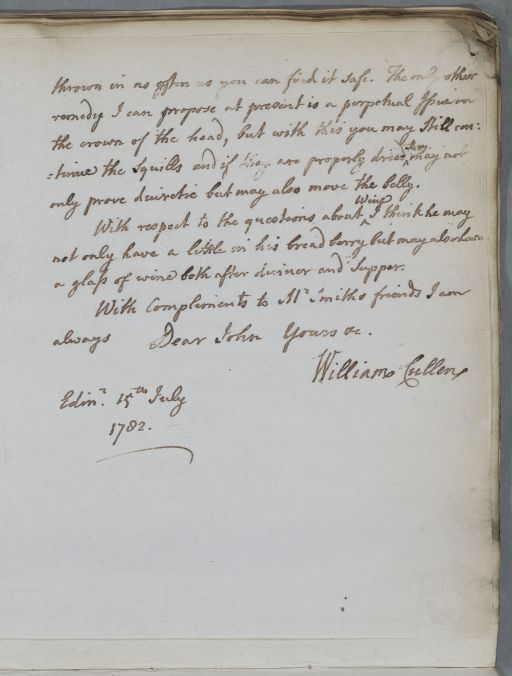 thrown in as often as you can find it safe. The only other
remedy I can propose at present is a perpetual Issue on
the crown of the head, but with this you may still con:
:tinue the Squills and if they are properly dried they may not
only prove diuretic but may also move the belly.
With respect to the questions about Wine I think he may
not only have a little in his bread berry but may also have
a glass of wine both after dinner and Supper.
With Compliments to Mr Smiths friends I am
always Dear John Yours &c.
William Cullen
Edinr. 15th July
1782.